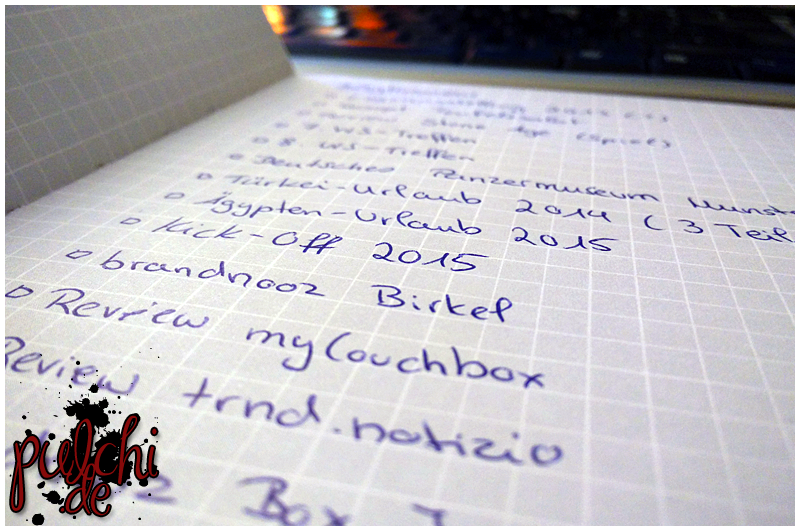 Stone Age (Spiel)
7. WS-Treffen
8. WS-Treffen
Deutsches Panzermuseum
Türkei-Urlaub 2014 (3 Teil
Ägypten-Urlaub 2015
Kick-Off 2015
brandnooz Birkel
Review myCouchbox
Review trnd.notizio
Box
pulchi
.de